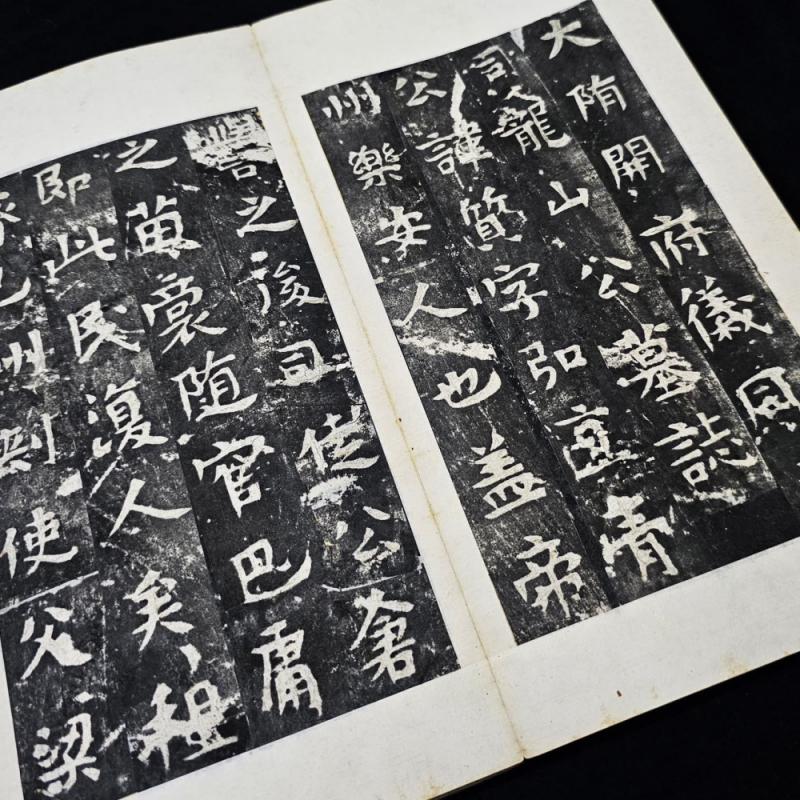 大陏開府儀同
司龍山公墓誌
公諱質字弘直青
州樂安人也盖帝
嚳之後司徒公蒼
之苗裔随官巴庸
即此民復人矣祖
巴州刾使父梁